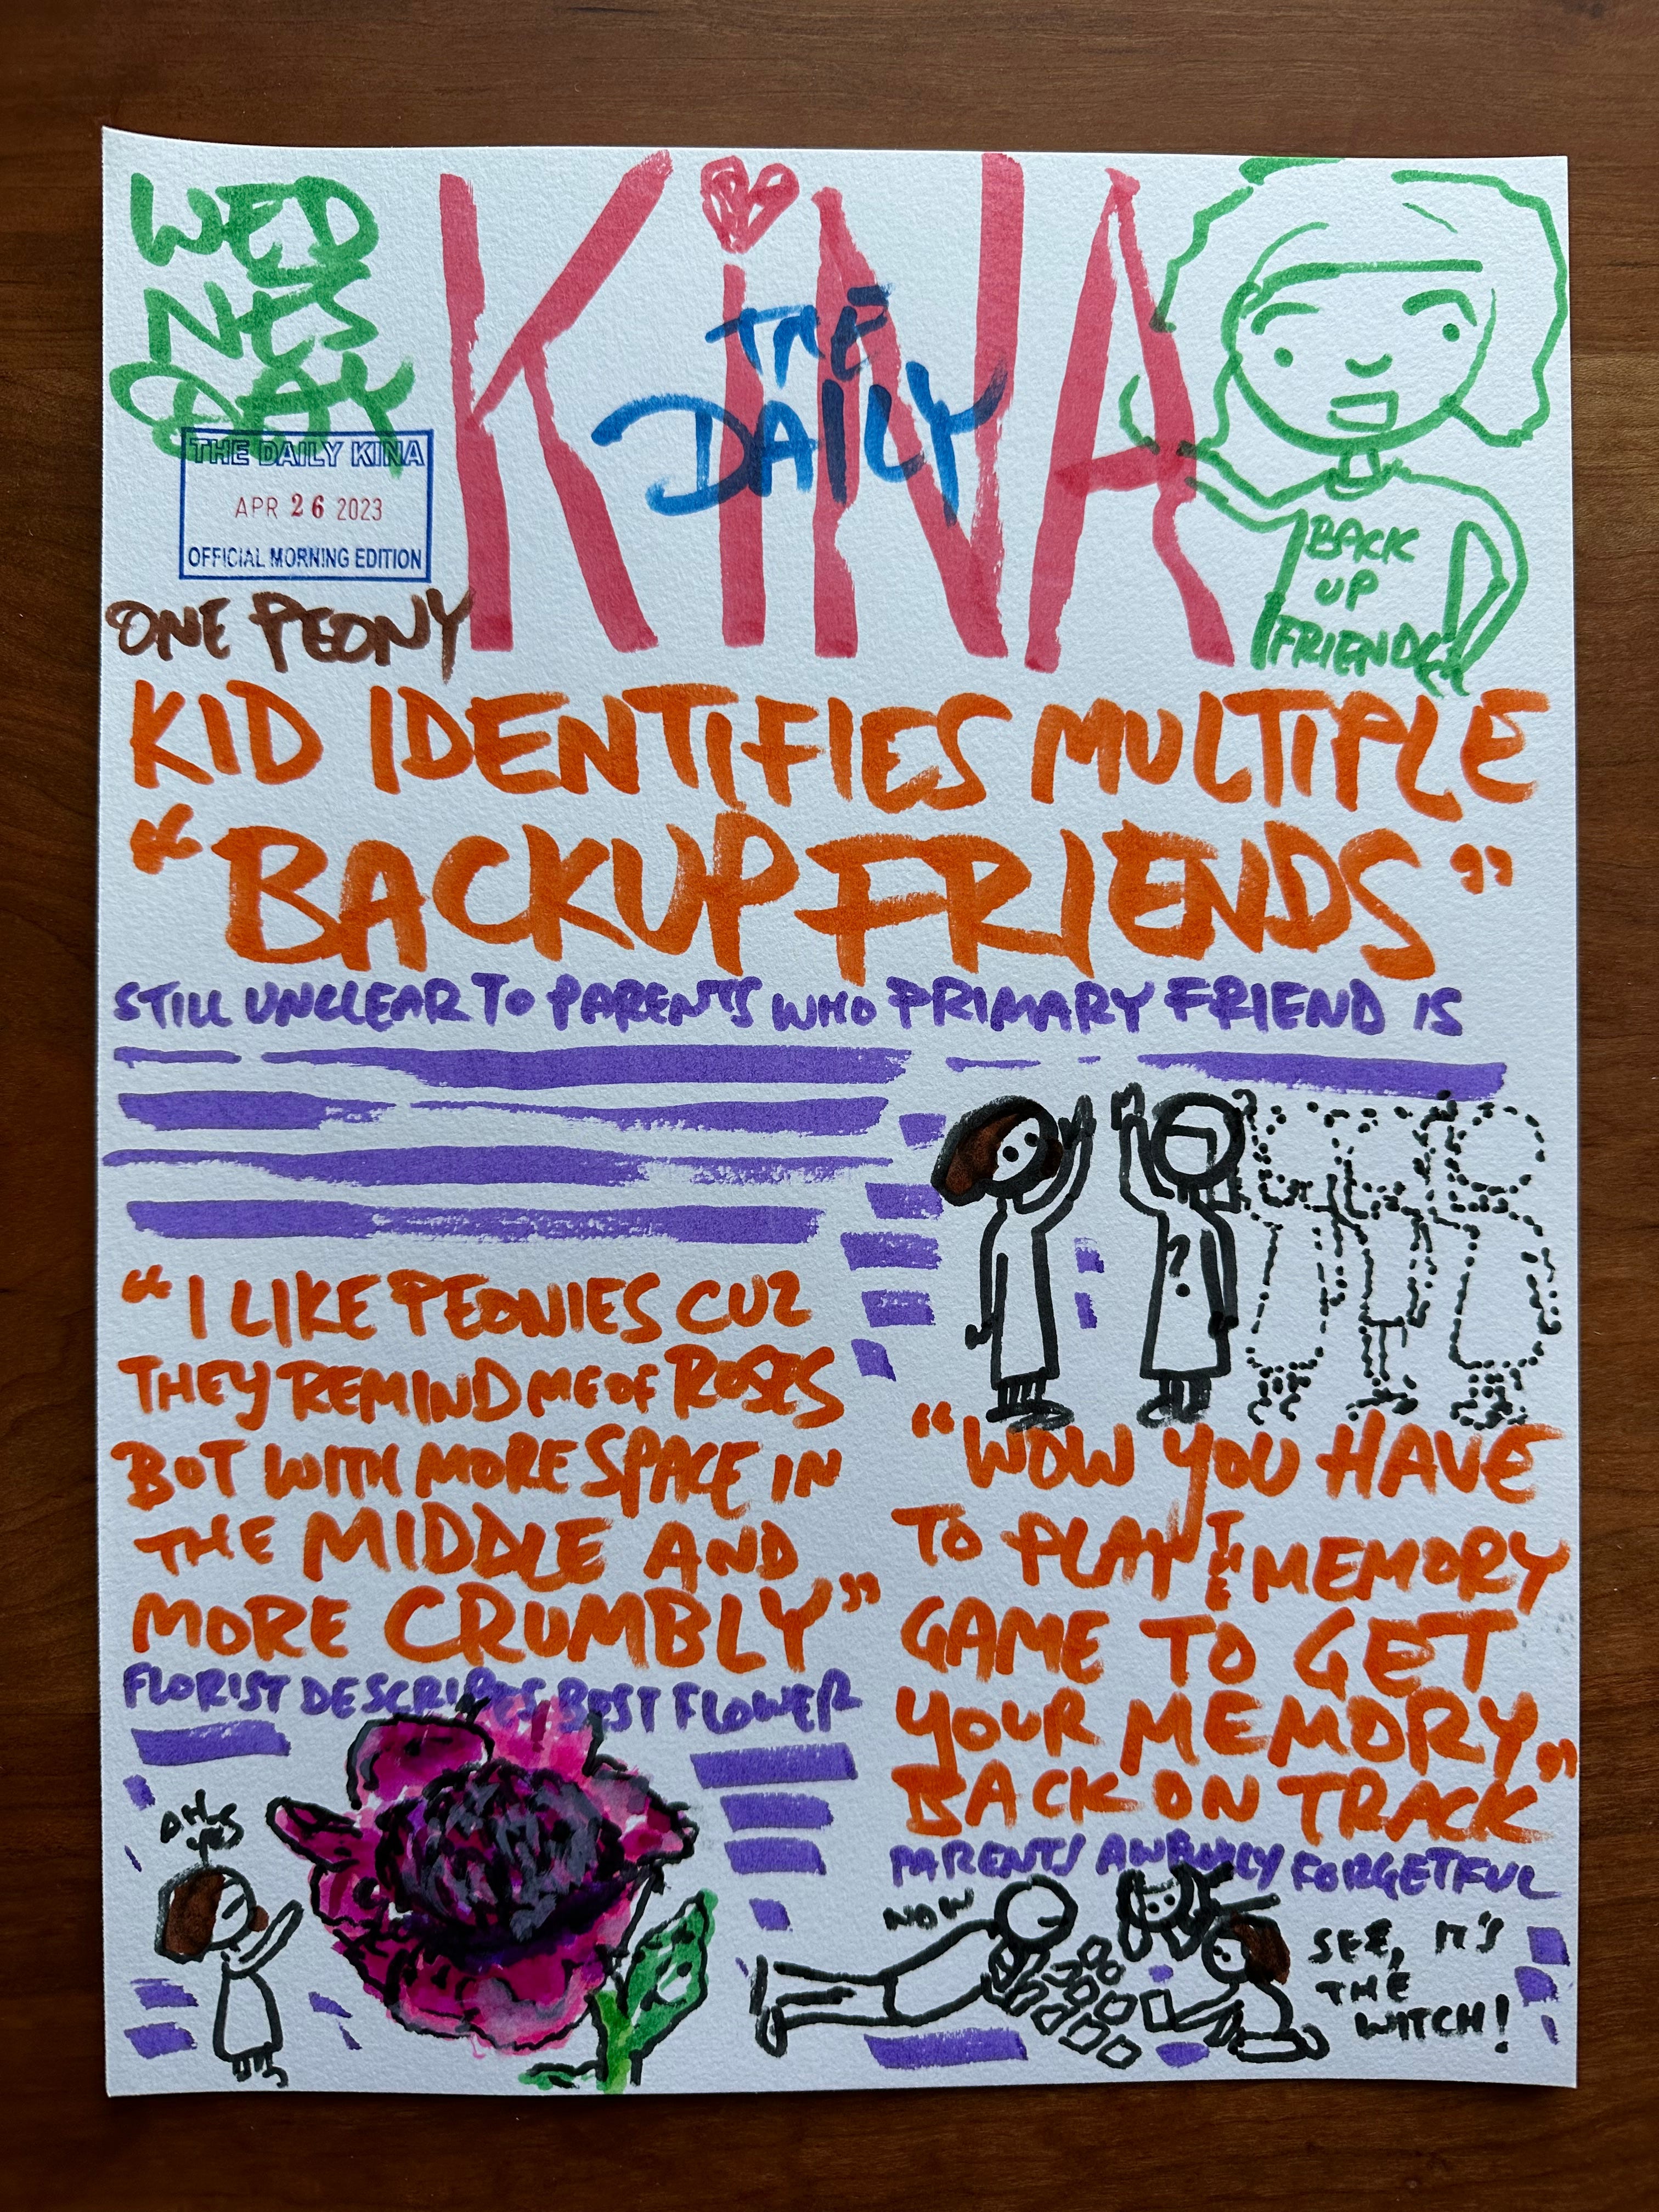 WED
NES
DAY
THE DAILY KINA
APR 26 2023
OFFICIAL MORNING EDITION
THE
DAILY
KiNA
BACK
UP
FRIENDS
ONE PEONY
KID IDENTIFIES MULTIPLE
"BACKUP FRIENDS"
STILL UNCLEAR TO PARENTS WHO PRIMARY FRIEND IS
?
"I LIKE PEONIES CUZ
THEY REMIND ME OF ROSES
BUT WITH MORE SPACE IN
THE MIDDLE AND
MORE CRUMBLY"
FLORIST DESCRIBES BEST FLOWER
AH
YES
"WOW YOU HAVE
TO PLAY THE MEMORY
GAME TO GET
YOUR MEMORY
BACK ON TRACK"
PARENTS AWFULLY FORGETFUL
NOW
SEE, IT'S
THE
WITCH!